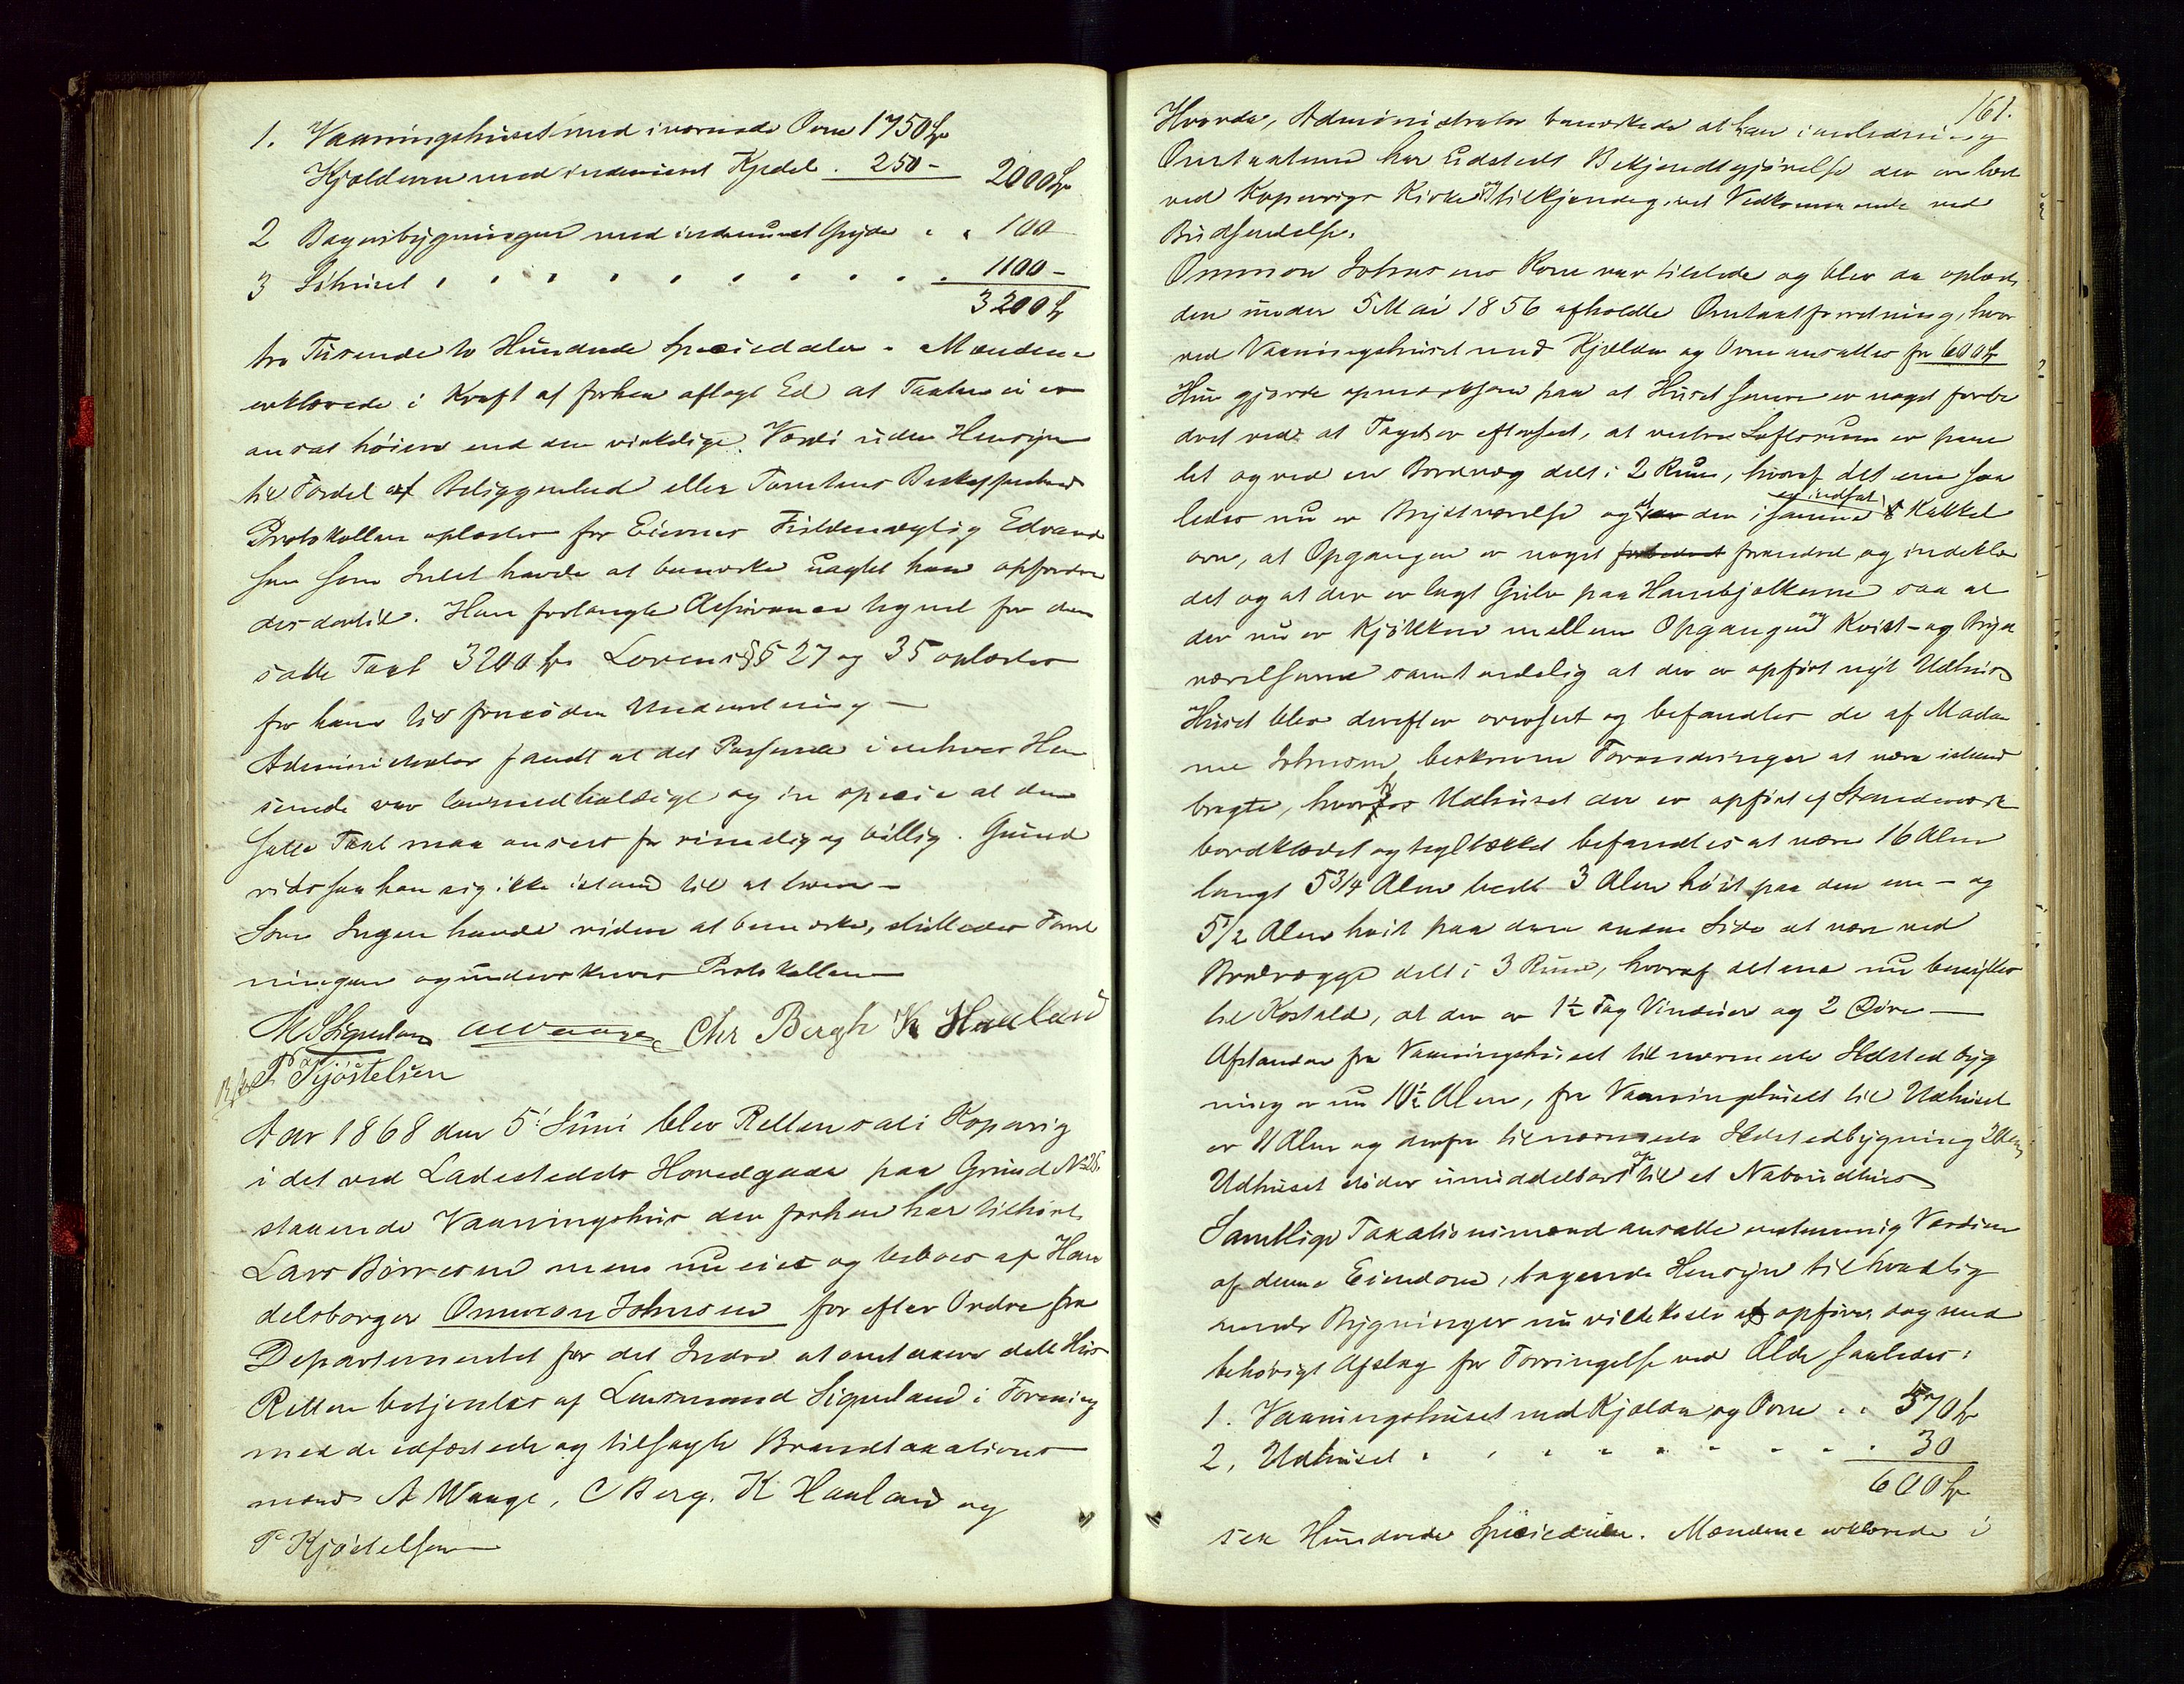 1. Vaaningshuset med iværende Ovne 1750 Sp
Kjælderen med indmuret Kjedel . 250 - 2000 Sp
2 Bageribygningen med indmuret Gryde " " 100
3 Söhuset " " " " " " " " " 1100 -
3200 Sp
tre Tusende to Hundrede Speciedaler - Mændene
erklærede i Kraft af forhen aflagt Ed at Taxten ei er
ansat höiere end den virkelige Værdi uden Hensyn
til Fordel af Beliggenhed eller Tomtens Beskaffenhed
Protokollen oplæstes for Eiernes Fuldmægtig Edvard
sen som Intet havde at bemærke uagtet han opfordre
des dertil. Han forlangte Assurance tegnet for den
satte Taxt 3200 Sp. Lovens §§ 27 og 35 oplæstes
for ham til fornöden Underretning -
Administrator fandt at det Passerede i enhver Hen
seende var lovmedholdigt og in specie at den
satte Taxt maa ansees for rimelig og billig. Grund
rids saa han sig ikke istand til at levere -
Som Ingen havde videre at bemærke, sluttedes Forret
ningen og underskreves Protokollen
M Sigveland AWaage Chr Bergh K Haaland
P Kjöstelsen
Aar 1868 den 5' Juni blev Retten sat i Kopervig
i det ved Ladestedets Hovedgade paa Grund No 28.
staaende Vaaningshus der forhen har tilhört
Lars Börresen mens nu eies og beboes af Han
delsborger Ommon Johnsen for efter Ordre fra
Departementet for det Indre at omtaxere dette Hus
Retten betjentes af Lensmand Sigveland i Forening
med de edfæstede og tilsagte Brandtaxations
mænd A Waage, C Berg, K Haaland og
P Kjöstelsen
161.
Hvorda, Administrator bemærkede at han i anledning
Omtaxten har udstedt Bekjendtgjörelse der er læst
ved Kopervigs Kirke og tilkjendegivet Vedkommende ved
Budsendelse.
Ommon Johnsens Kone var tilstede og blev da oplæst
den under 5 Mai 1856 afholdte Omtaxtforretning, hvor
ved Vaaningshuset med Kjelder og Ovne ansattes for 600 Sp
Hun gjorde opmærksom paa at Huset senere er noget forbe
dret ved at Taget er efterseet, at vestre Loftsrum er pane
let og ved en Bordvæg delt i 2 Rum, hvoraf det ene saa
ledes nu er Brystværelse og at der i samme er indsat Kakkel
ovn, at Opgangen er noget forbedret forandret og indeklæ
det og at der er lagt Gulv paa Hanebjelkerne saa at
der nu er Kjökken mellem Opgangen og Kvist- og Bryst
værelserne samt endelig at der er opfört nyt Udhus
Huset blev derefter overseet og befandtes de af Mada
me Johnsen beskrevne Forandringer at være istand
bragte, hvorfor Udhuset der er opfört af Standværk
bordklædt og tegltækket befandtes at være 16 Alen
langt 5 3/4 Alen bredt 3 Alen höit paa den ene - og
5 1/2 Alen höit paa den anden Side at være ved
Bordvægge delt i 3 Rum, hvoraf det ene nu benyttes
til Kostald, at der er 1 1/2 Fag Vinduer og 2 Döre -
Afstanden fra Vaaningshuset til nærmeste Ildstedbyg
ning er nu 10 1/2 Alen, fra Vaaningshuset til Udhuset
er 11 Alen og derfra til nærmeste Ildstedbygning 2 Alen
Udhuset stöder umiddelbart op til et Naboudhus
Samtlige Taxationsmænd ansatte enstemmig Værdien
af denne Eiendom, tagende Hensyn til hvad lig
nende Bygninger nu vilde koste at opföre, dog med
behörigt Afslag for Forringelse ved Ælde saaledes:
1. Vaaningshuset med Kjelder og Ovne " " 570 Sp
2. Udhuset " " " " " " " " 30
600 Sp
sex Hundrede Speciedaler. Mændene erklærede i